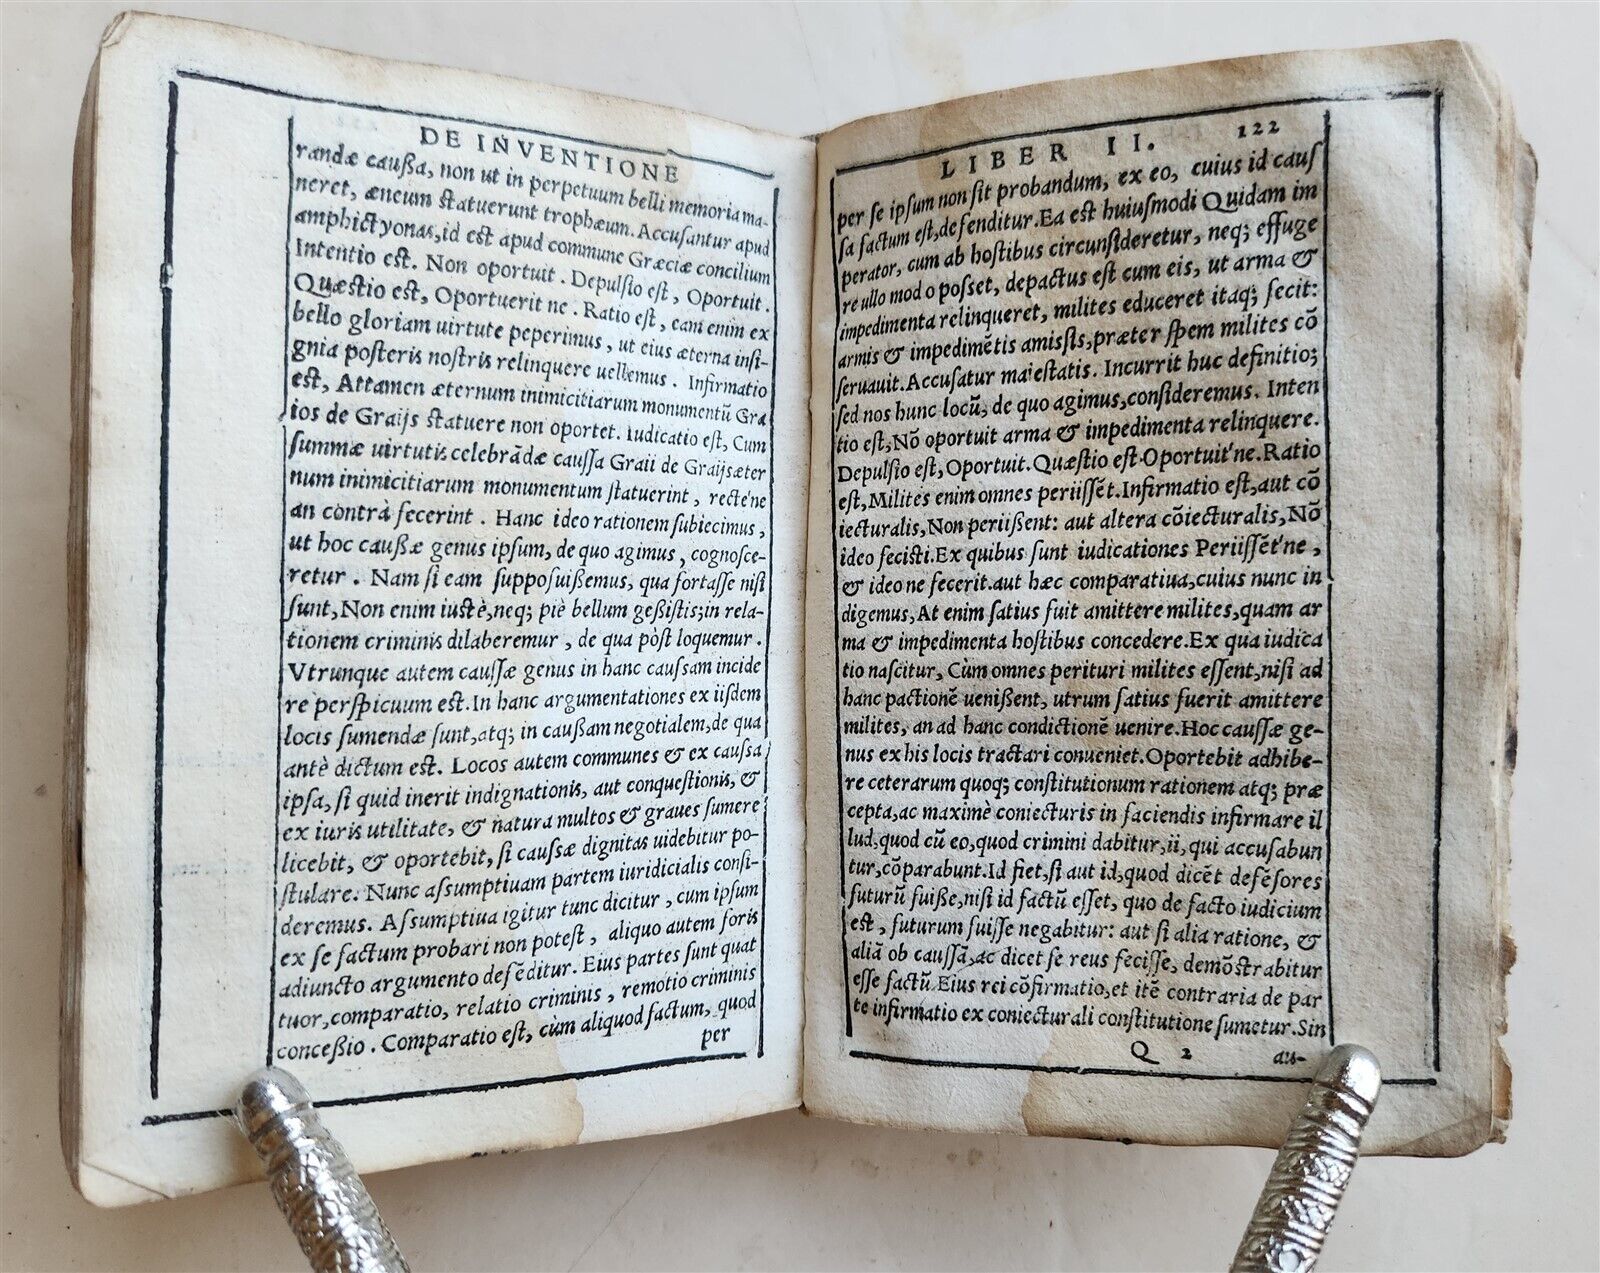 DE INVENTIONE
randæ caußa, non ut in perpetuum belli memoria ma-
neret, æneum statuerunt trophæum. Accusantur apud
amphictyonas, id est apud commune Græciæ concilium
Intentio est. Non oportuit. Depulsio est, Oportuit.
Quæstio est, Oportuerit ne. Ratio est, eam enim ex
bello gloriam uirtute peperimus, ut eius æterna insi-
gnia posteris nostris relinquere uellemus. Infirmatio
est, Attamen æternum inimicitiarum monumentũ Gra
ios de Graijs statuere non oportet. Iudicatio est, Cum
summæ uirtutis celebrãdæ caussa Graii de Graijs æter
num inimicitiarum monumentum statuerint, recte'ne
an contrà fecerint. Hanc ideo rationem subiecimus,
ut hoc caußæ genus ipsum, de quo agimus, cognosce-
retur. Nam si eam supposuißemus, qua fortasse nisi
sunt, Non enim iustè, neq; piè bellum geßistis; in rela-
tionem criminis dilaberemur, de qua pòst loquemur.
Vtrunque autem caussæ genus in hanc caussam incide
re perspicuum est. In hanc argumentationes ex iisdem
locis sumendæ sunt, atq; in caußam negotialem, de qua
antè dictum est. Locos autem communes & ex caussa
ipsa, si quid inerit indignationis, aut conquestionis, &
ex iuris utilitate, & natura multos & graues sumere
licebit, & oportebit, si caussæ dignitas uidebitur po-
stulare. Nunc assumptiuam partem iuridicialis consi-
deremus. Assumptiua igitur tunc dicitur, cum ipsum
ex se factum probari non potest, aliquo autem foris
adiuncto argumento defẽditur. Eius partes sunt quat
tuor, comparatio, relatio criminis, remotio criminis
conceßio. Comparatio est, cùm aliquod factum, quod
per
LIBER II. 122
per se ipsum non sit probandum, ex eo, cuius id caus
sa factum est, defenditur. Ea est huiusmodi Quidam im
perator, cum ab hostibus circunsideretur, neq; effuge
re ullo modo posset, depactus est cum eis, ut arma &
impedimenta relinqueret, milites educeret itaq; fecit:
armis & impedimẽtis amissis, præter spem milites cõ
seruauit. Accusatur maiestatis. Incurrit huc definitio;
sed nos hunc locũ, de quo agimus, consideremus. Inten
tio est, Nõ oportuit arma & impedimenta relinquere.
Depulsio est, Oportuit. Quæstio est Oportuit'ne. Ratio
est, Milites enim omnes periissẽt. Infirmatio est, aut cõ
iecturalis, Non periißent: aut altera cõiecturalis, Nõ
ideo fecisti. Ex quibus sunt iudicationes Periissẽt'ne,
& ideo ne fecerit. aut hæc comparatiua, cuius nunc in
digemus, At enim satius fuit amittere milites, quam ar
ma & impedimenta hostibus concedere. Ex qua iudica
tio nascitur, Cùm omnes perituri milites essent, nisi ad
hanc pactionẽ uenißent, utrum satius fuerit amittere
milites, an ad hanc condictionẽ uenire. Hoc caussæ ge-
nus ex his locis tractari conueniet. Oportebit adhibe-
re ceterarum quoq; constitutionum rationem atq; præ
cepta, ac maximè coniecturis in faciendis infirmare il
lud, quod cũ eo, quod crimini dabitur, ii, qui accusabun
tur, cõparabunt. Id fiet, si aut id, quod dicẽt defẽsores
futurũ fuiße, nisi id factũ esset, quo de facto iudicium
est, futurum fuisse negabitur: aut si alia ratione, &
aliã ob caussã, ac dicet se reus fecisse, demõstrabitur
esse factũ. Eius rei cõfirmatio, et itẽ contraria de par
te infirmatio ex coniecturali constitutione sumetur. Sin
Q 2 au-